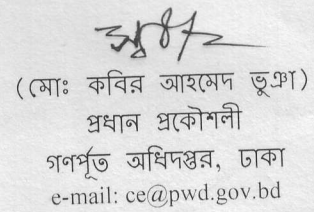 (মোঃ কবির আহমেদ ভূঞা)
প্রধান প্রকৌশলী
গণপূর্ত অধিদপ্তর, ঢাকা
e-mail: ce@pwd.gov.bd